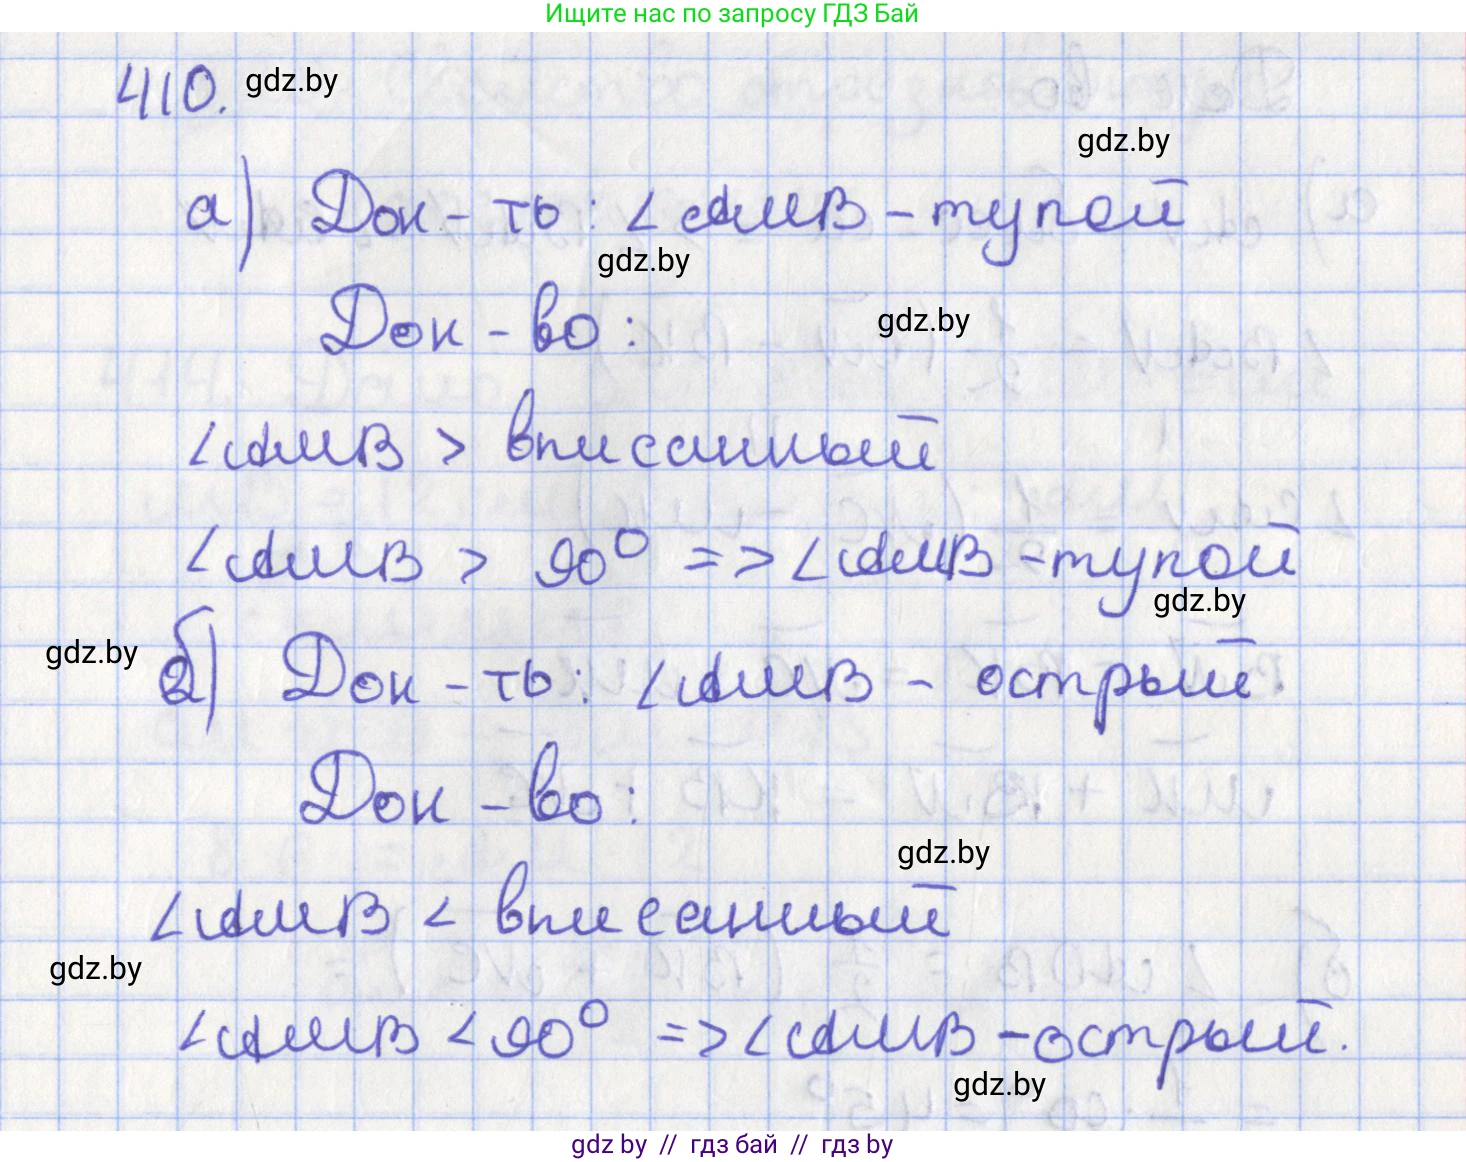 Ищите нас по запросу ГДЗ Бай
410. gdz.by
gdz.by
а) Док-ть: ∠AMB - тупой
gdz.by
Док-во: gdz.by
∠AMB > вписанный
∠AMB > 90° => ∠AMB - тупой
gdz.by
gdz.by б) Док-ть: ∠AMB - острый.
Док-во:
gdz.by
∠AMB < вписанный
gdz.by
∠AMB < 90° => ∠AMB - острый.
gdz.by
gdz.by // гдз бай // гдз by